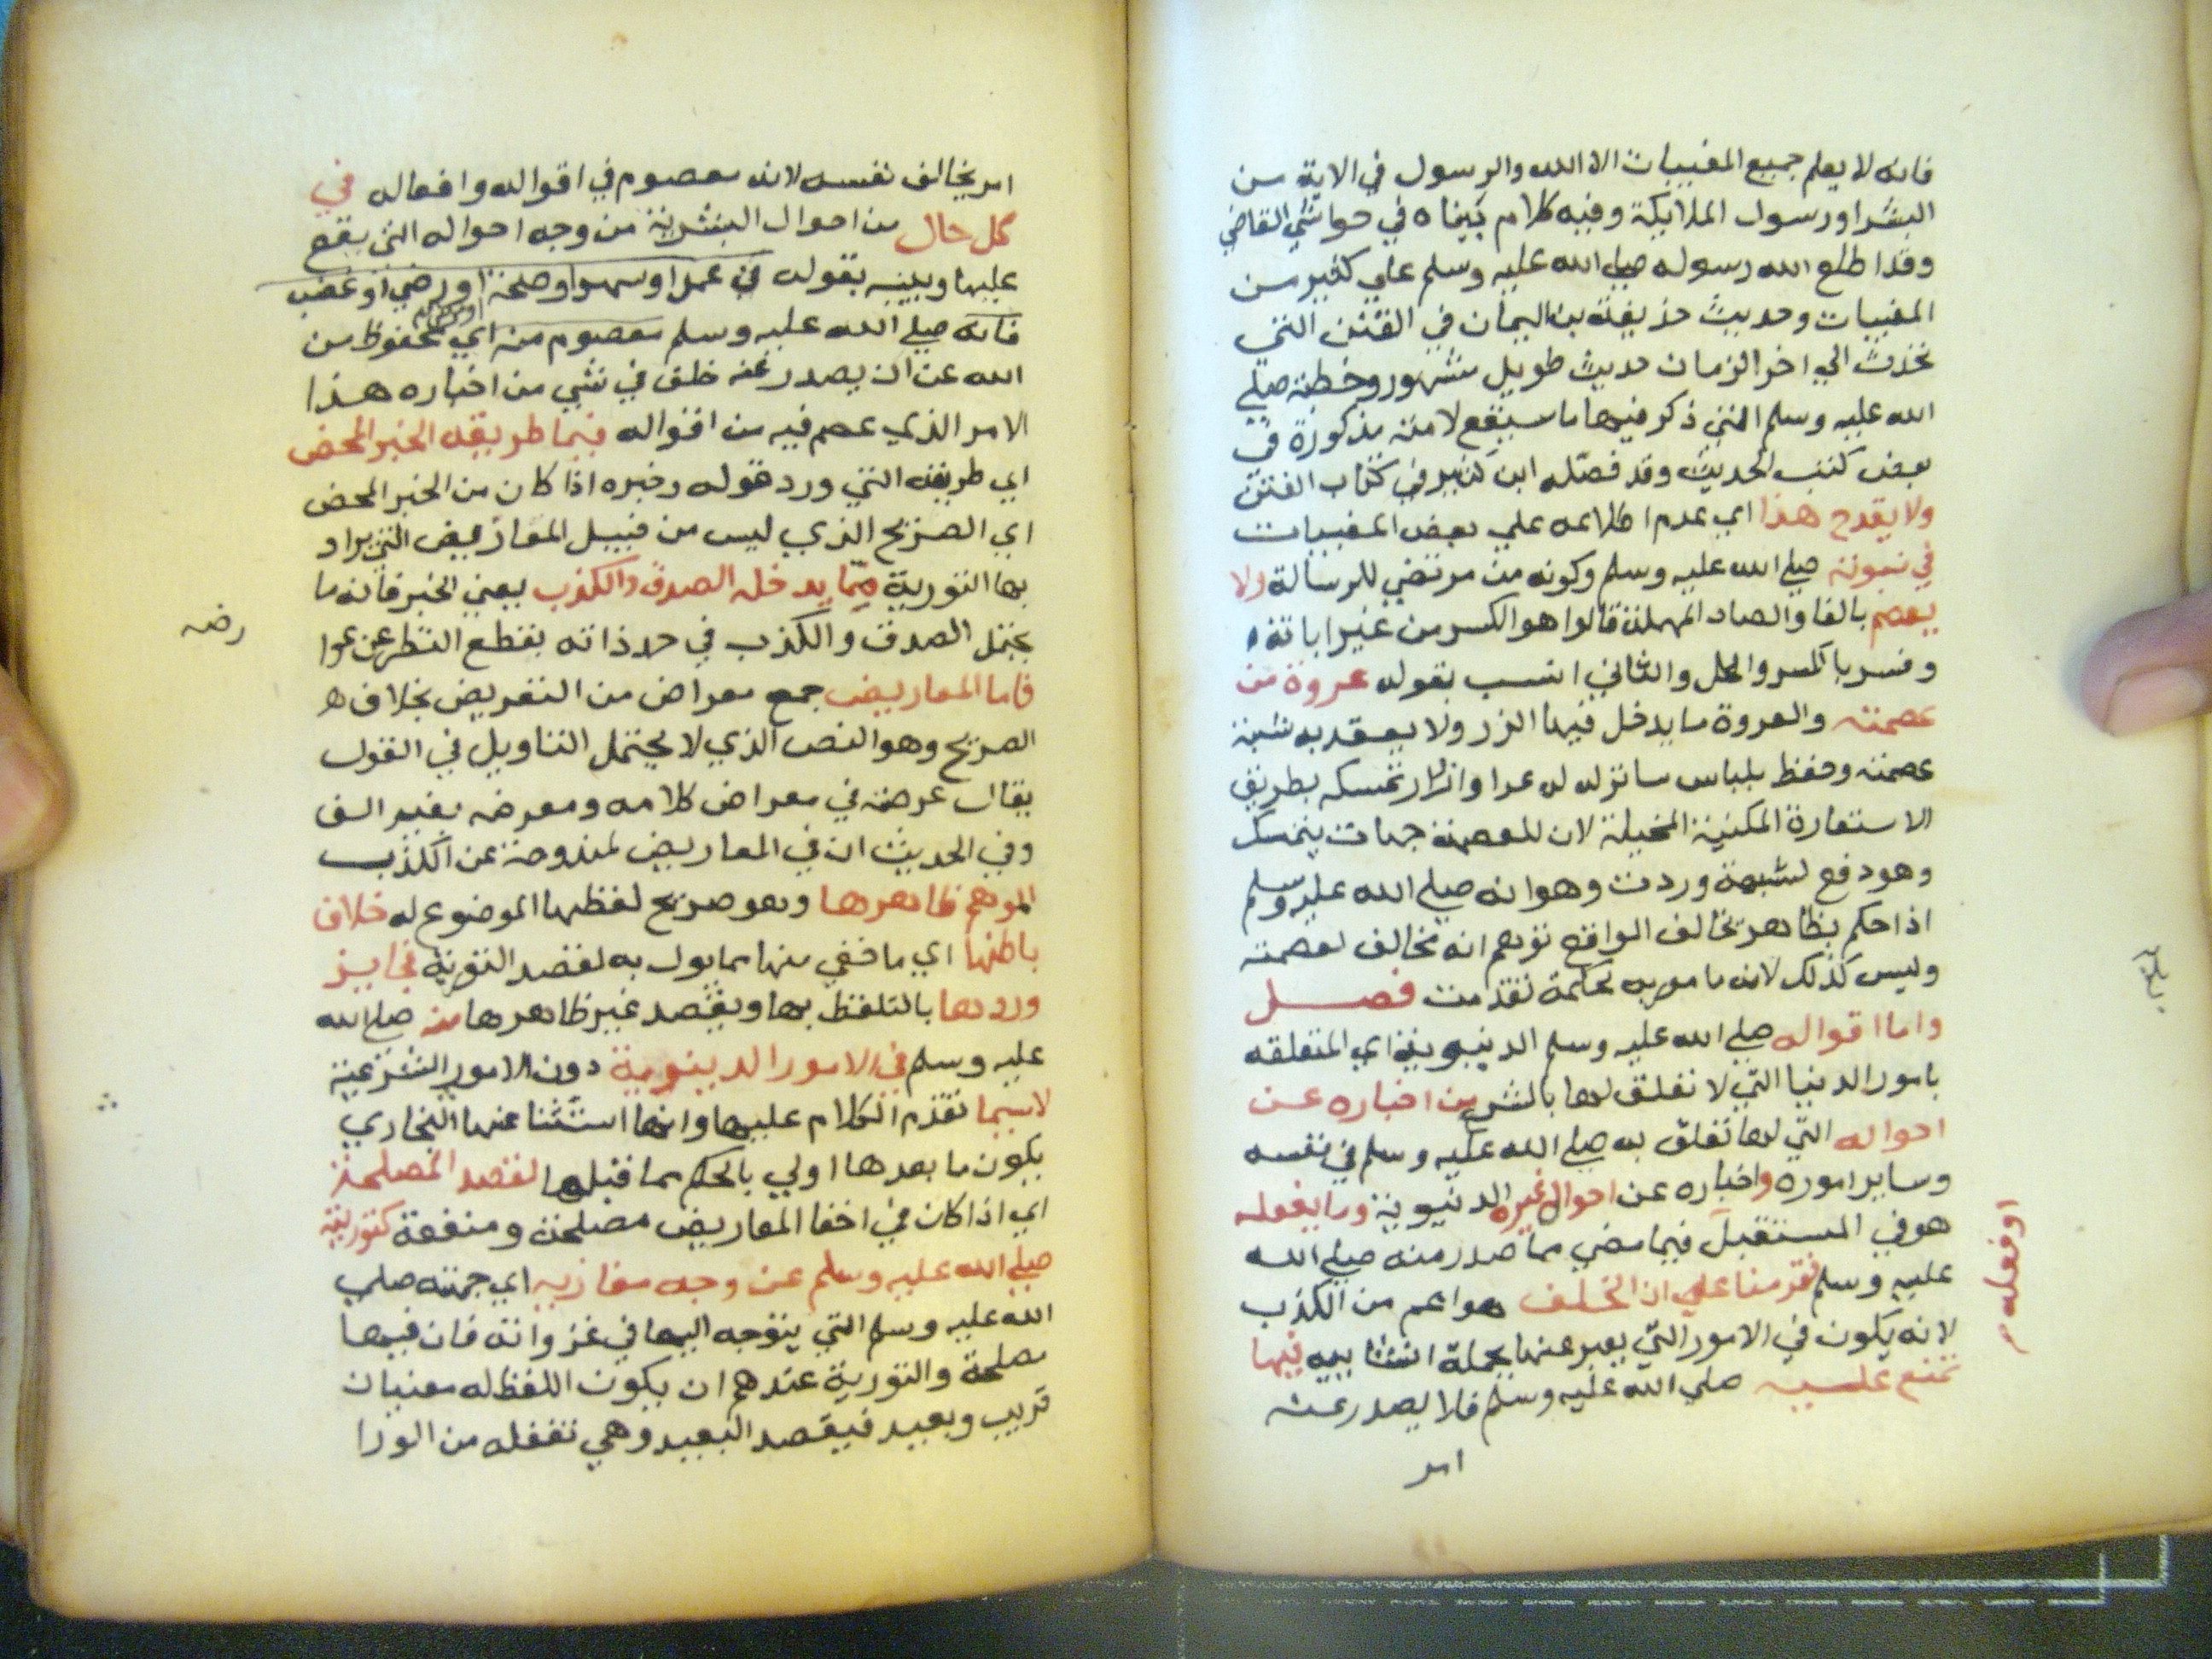 فانه لا يعلم جميع المغيبات الا الله والرسول في الاية من
البشر او رسول الملايكة وفيه كلام بيناه في حواشي القاضي
وقد اطلع الله رسوله صلي الله عليه وسلم علي كثير من
المغيبات وحديث حذيفة بن اليمان في الفتن التي
تحدث الي اخر الزمان حديث طويل مشهور وخطبته صلي
الله عليه وسلم التي ذكر فيها ما سيقع لامته مذكورة في
بعض كتب الحديث وقد فصله ابن كثير في كتاب الفتن
ولا يقدح هذا اي عدم اطلاعه علي بعض المغيبات
في نبوته صلي الله عليه وسلم وكونه من مرتضي للرسالة ولا
يفصم بالفا والصاد المهملة قالوا هو الكسر من غير ابانة
وفسر بالكسر والحل والثاني انسب بقوله عروة من
عصمته والعروة ما يدخل فيها الزر ولا يعقد به شبه
عصمته وحفظ بلباس ساتر له عرا وازرار تمسكه بطريق
الاستعارة المكنية المخيلة لان للعصمة جهات يتمسك
وهو دفع لشبهة وردت وهو انه صلي الله عليه وسلم
اذا حكم بظاهر يخالف الواقع توهم انه مخالف لعصمته
وليس كذلك لانه مامور به لحكمة تقدمت فصل
واما اقواله صلي الله عليه وسلم الدنيوية اي المتعلقه
بامور الدنيا التي لا تعلق لها بالشر من اخباره عن
احواله التي لها تعلق به صلي الله عليه وسلم في نفسه
وساير اموره واخباره عن احوال غيره الدنيوية وما يفعله
او فعله م
هو في المستقبل فيما مضي مما صدر منه صلي الله
عليه وسلم فقد منا علي ان الخلف هو اعم من الكذب
لانه يكون في الامور التي يعبر عنها بجملة انشاييه فيها
ممتنع عليه صلي الله عليه وسلم فلا يصدر عنه
امر
امر يخالف نفسه لانه معصوم في اقواله وافعاله في
كل حال من احوال البشرية من وجه احواله التي يقع
عليها وبينه بقوله في عمد او سهو او صحة او رضي او غضب
او مرض
فانه صلي الله عليه وسلم معصوم منه اي محفوظ من
الله عن ان يصدر عنه خلف في شي من اخباره هذا
الامر الذي عصم فيه من اقواله فيما طريقه الخبر المحض
اي طريقه التي ورد قوله وخبره اذا كان من الخبر المحض
اي الصريح الذي ليس من قبيل المعاريض التي يراد
بها التورية مما يدخله الصدق والكذب يعني الخبر فانه ما
يحتمل الصدق والكذب في حد ذاته بقطع النظر عن
فاما المعاريض جمع معراض من التعريض بخلاف
الصريح وهو النص الذي لا يحتمل التاويل في القول
يقال عرضته في معراض كلامه ومعرضه بغير الف
وفي الحديث ان في المعاريض لمندوحة عن الكذب
الموهم ظاهرها وهو صريح لفظها الموضوع له خلاف
باطنها اي ما خفي منها مما يول به لقصد التورية فجايز
ورودها بالتلفظ بها ويقصد غير ظاهرها منه صلي الله
عليه وسلم في الامور الدينوية دون الامور الشرعية
لاسيما تقدم الكلام عليها وانها استثنا عنها البخاري
يكون ما بعدها اولي بالحكم مما قبلها لقصد المصلحة
اي اذا كان في اخفا المعاريض مصلحة ومنفعة كتوريته
صلي الله عليه وسلم عن وجه مغازيه اي جهته صلي
الله عليه وسلم التي يتوجه اليها في غزواته فان فيها
مصلحة والتورية عندهم ان يكون اللفظ له معنيان
قريب وبعيد فيقصد البعيد وهي تفعله من الورا